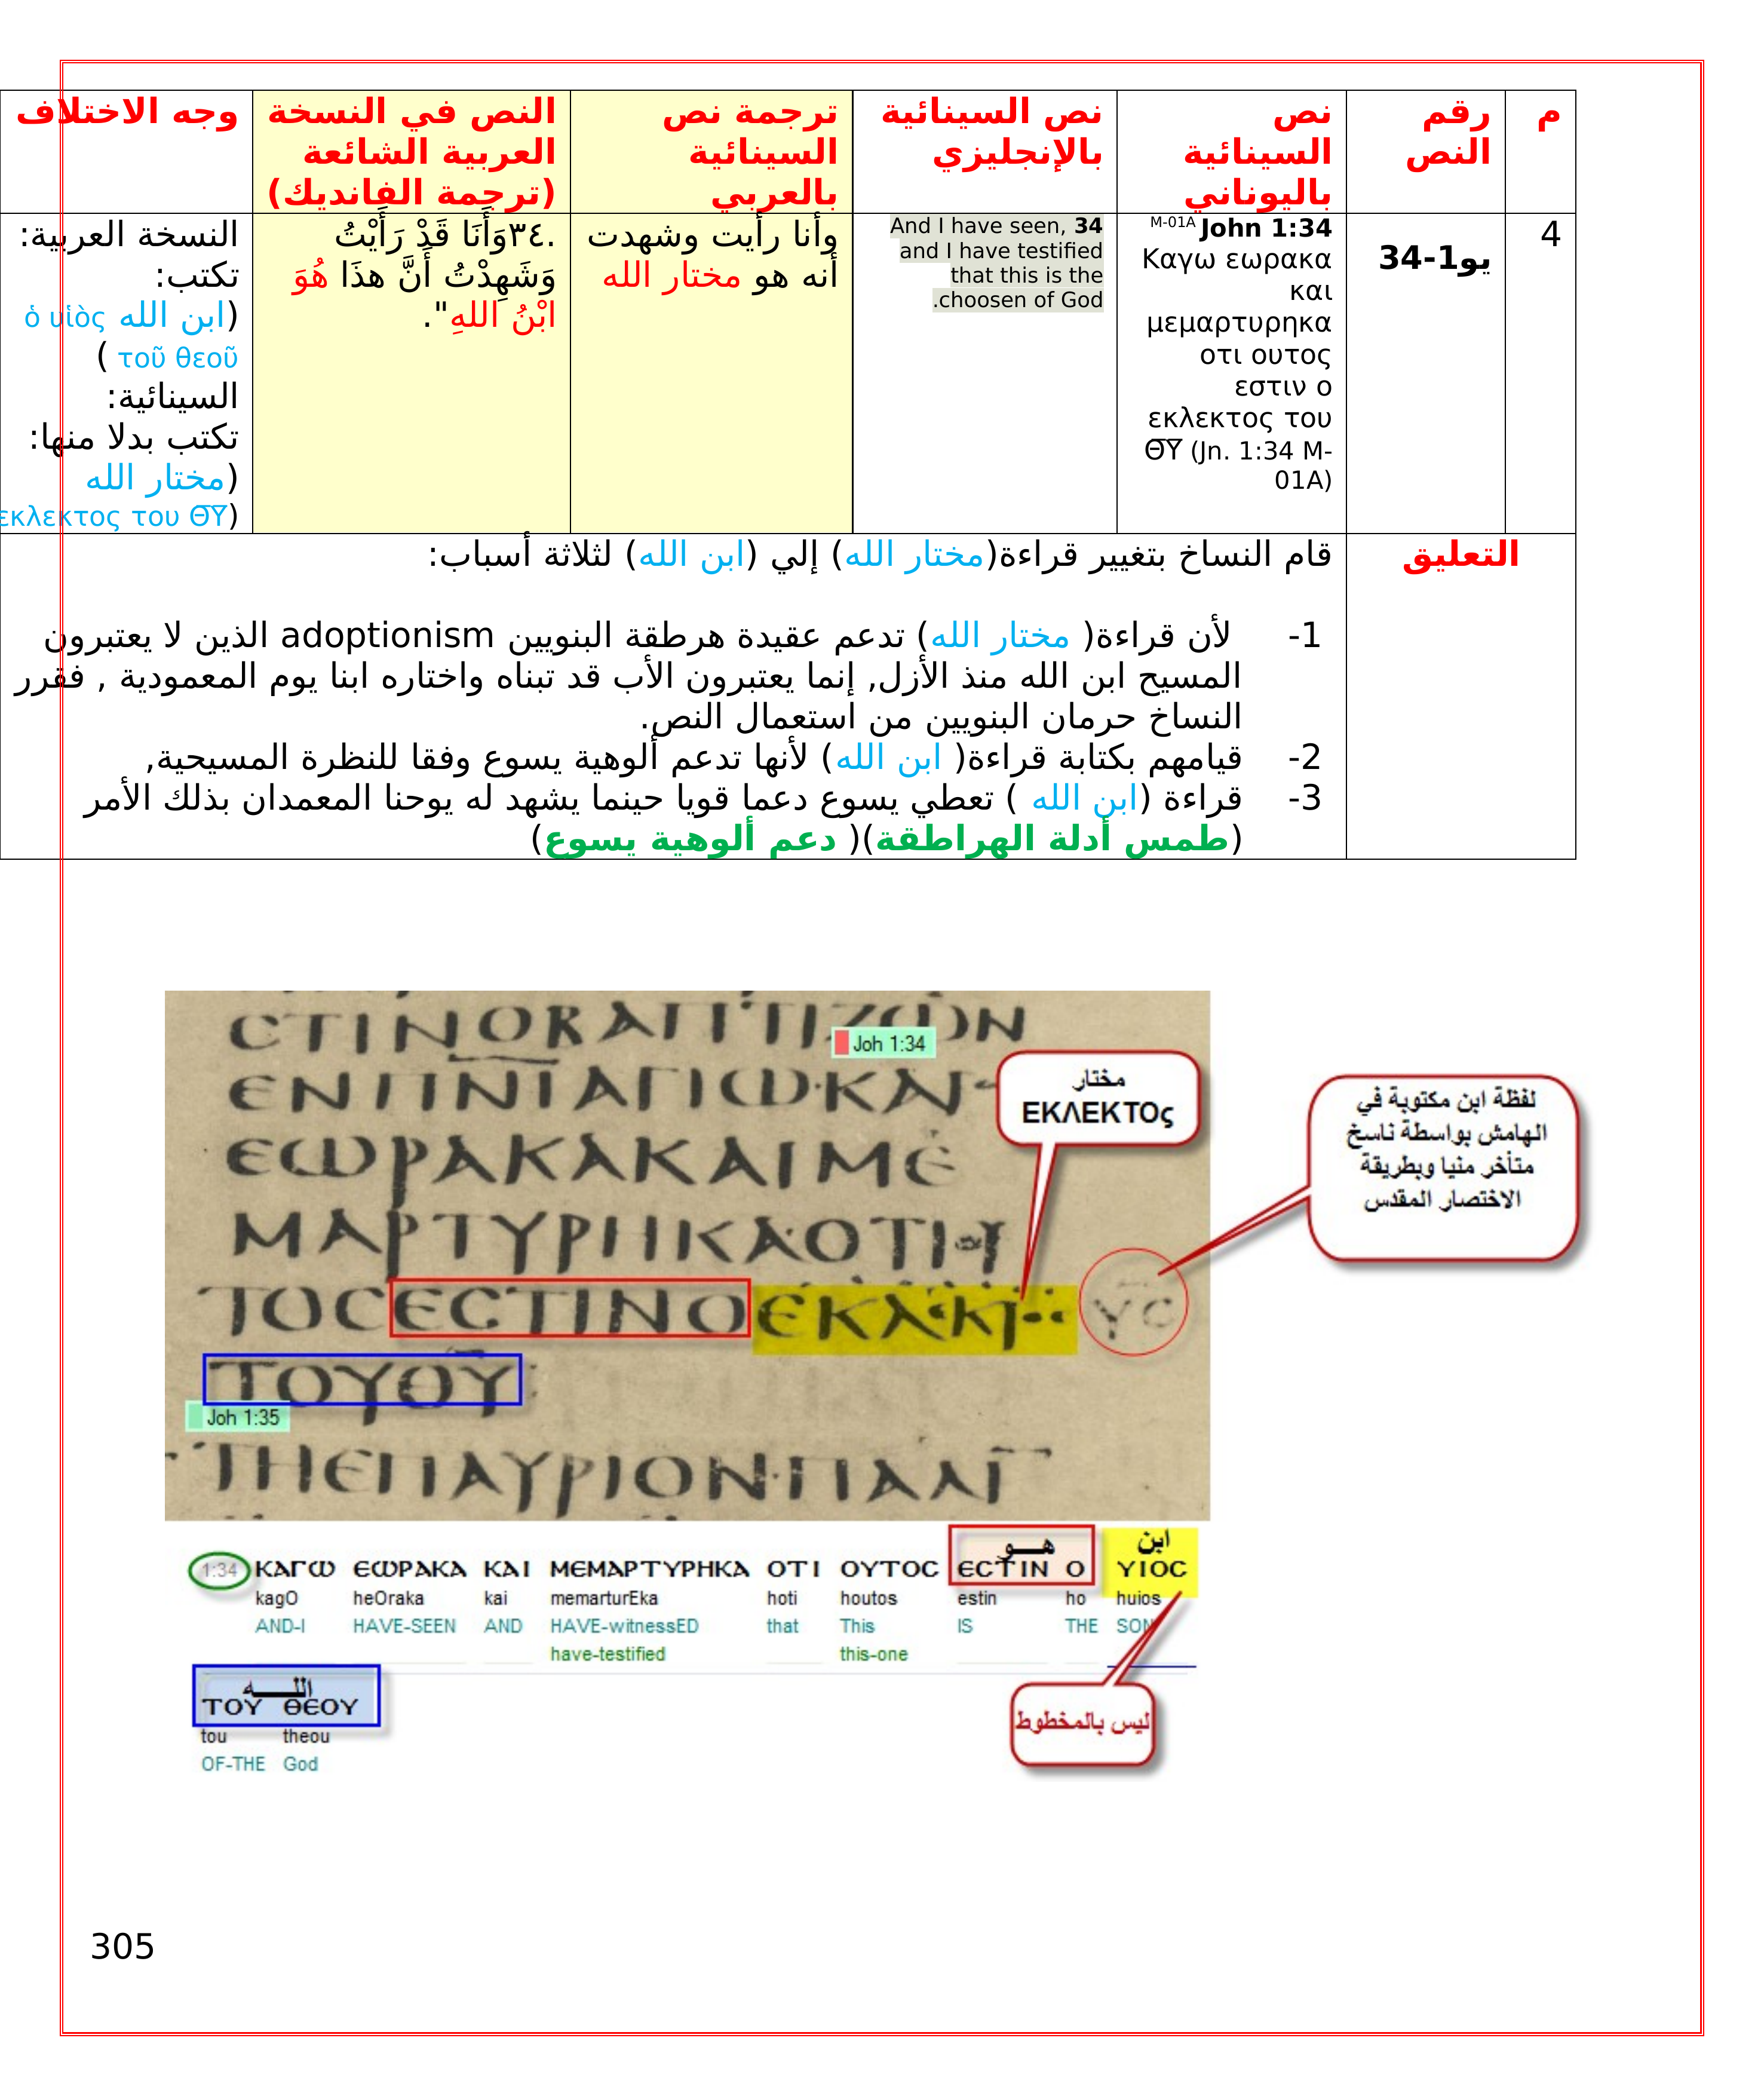 م
رقم
النص
نص
السينائية
باليوناني
نص السينائية
بالإنجليزي
ترجمة نص
السينائية
بالعربي
النص في النسخة
العربية الشائعة
(ترجمة الفانديك)
وجه الاختلاف
4
يو1-34
M-01A John 1:34
Καγω εωρακα
και
μεμαρτυρηκα
οτι ουτος
εστιν ο
εκλεκτος του
Θ̅Υ̅ (Jn. 1:34 M-
01A)
And I have seen, 34
and I have testified
that this is the
.choosen of God
وأنا رأيت وشهدت
أنه هو مختار الله
.٣٤وَأَنَا قَدْ رَأَيْتُ
وَشَهِدْتُ أَنَّ هذَا هُوَ
ابْنُ اللهِ".
النسخة العربية:
تكتب:
(ابن الله ὁ υἱὸς
τοῦ θεοῦ )
السينائية:
تكتب بدلا منها:
(مختار الله
εκλεκτος του Θ̅Υ̅)
التعليق
قام النساخ بتغيير قراءة(مختار الله) إلي (ابن الله) لثلاثة أسباب:
1- لأن قراءة( مختار الله) تدعم عقيدة هرطقة البنويين adoptionism الذين لا يعتبرون
المسيح ابن الله منذ الأزل, إنما يعتبرون الأب قد تبناه واختاره ابنا يوم المعمودية , فقرر
النساخ حرمان البنويين من استعمال النص.
2- قيامهم بكتابة قراءة( ابن الله) لأنها تدعم ألوهية يسوع وفقا للنظرة المسيحية,
3- قراءة (ابن الله ) تعطي يسوع دعما قويا حينما يشهد له يوحنا المعمدان بذلك الأمر
(طمس أدلة الهراطقة)( دعم ألوهية يسوع)
CΤΙΝΟΒΑΠΤΙΖΩΝ
Joh 1:34
ΕΝΠΝΙΑΓΙΩ·ΚΑΙ
مختار
ΕΚΛΕΚΤΟς
لفظة ابن مكتوبة في
الهامش بواسطة ناسخ
متأخر منيا وبطريقة
الاختصار المقدس
ΕΩΡΑΚΑΚΑΙΜΕ
ΜΑΡΤΥΡΗΚΑ·ΟΤΙ
ΤΟCΕCΤΙΝΟΕΚΛΕΚΤ ΥC
ΤΟΥΘΥ
Joh 1:35
ΤΗΕΠΑΥΡΙΟΝ·ΠΑΛΙ
هـــو
ابن
1:34 ΚΑΓΩ ΕΩΡΑΚΑ ΚΑΙ ΜΕΜΑΡΤΥΡΗΚΑ ΟΤΙ ΟΥΤΟC ΕCΤΙΝ Ο ΥΙΟC
kagO heOraka kai memarturEka hoti houtos estin ho huios
AND-I HAVE-SEEN AND HAVE-witnessED that This IS THE SON
have-testified this-one
اللـــــه
ΤΟΥ ΘΕΟΥ
tou theou
OF-THE God
ليس بالمخطوط
305